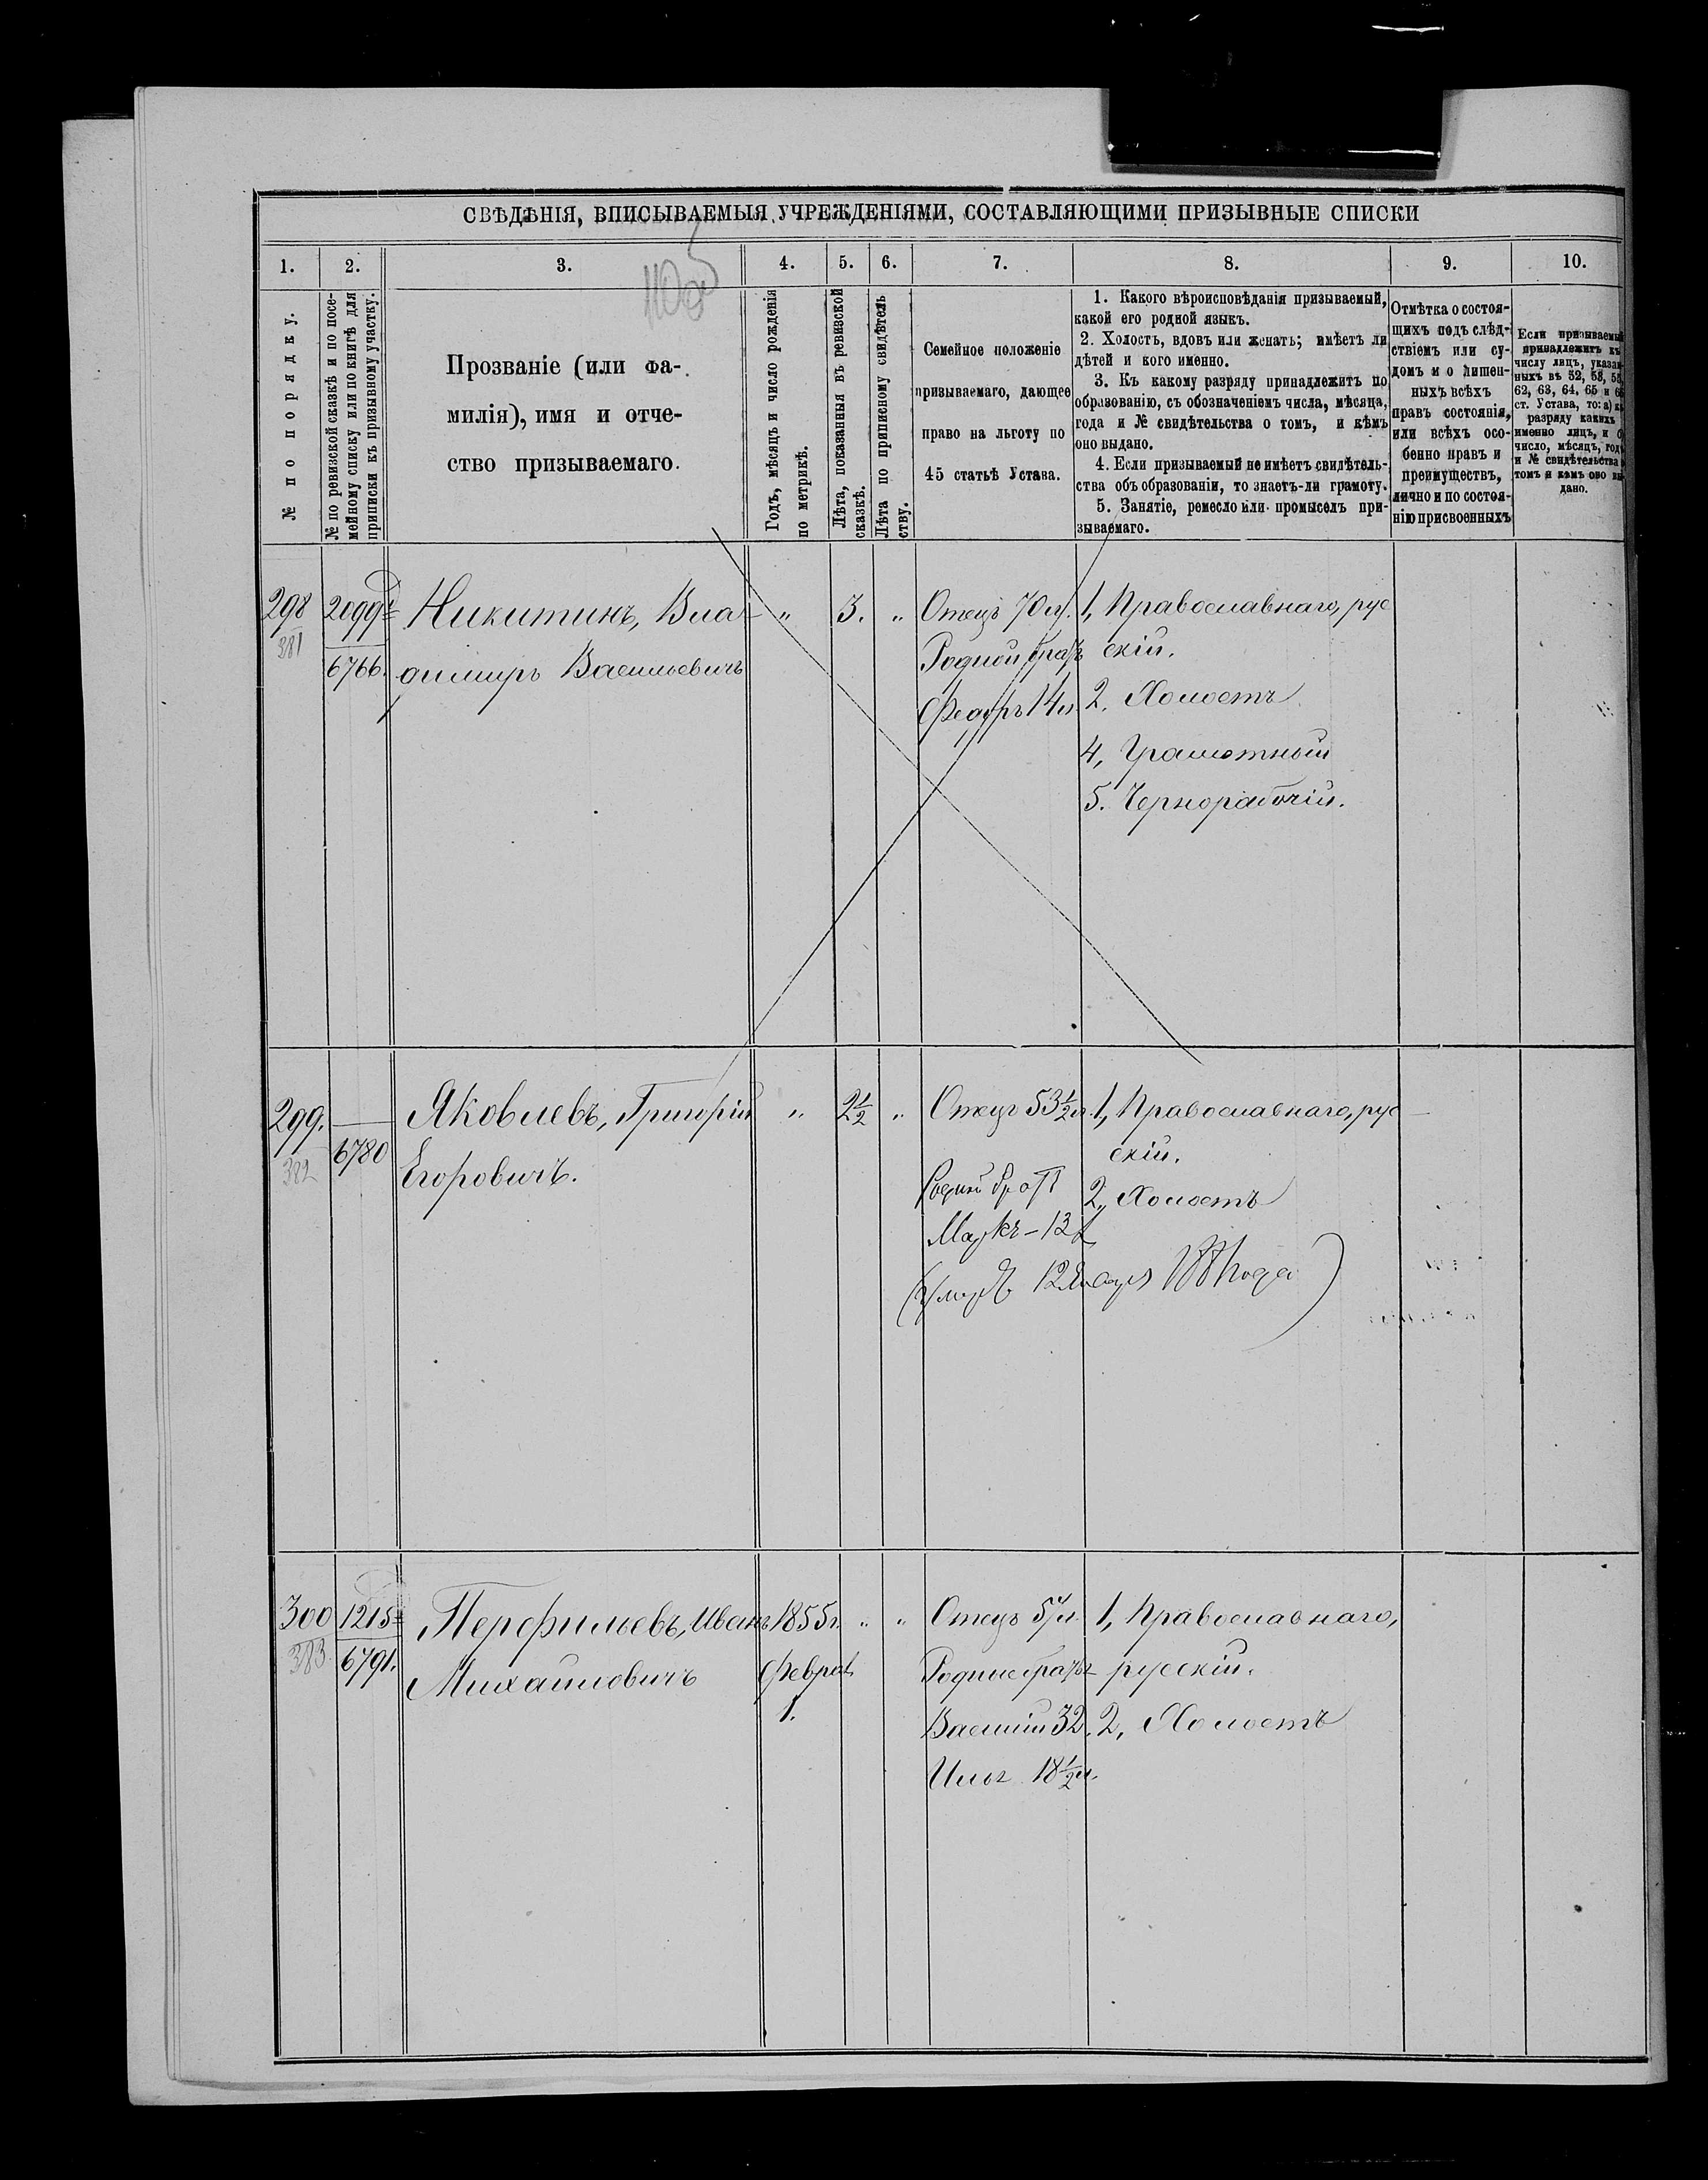 СВѢДѢНІЯ, ВПИСЫВАЕМЫЯ УЧРЕЖДЕНІЯМИ, СОСТАВЛЯЮЩИМИ ПРИЗЫВНЫЕ СПИСКИ
1. 2. 3. 4. 5. 6. 7. 8. 9. 10.
№ по порядку.
№ по ревизской сказкѣ и по посе-
мейному списку или по книгѣ для
приписки къ призывному участку.
Прозваніе (или фа-
милія), имя и отче-
ство призываемаго.
Годъ, мѣсяцъ и число рожденія
по метрикѣ.
Лѣта, показанныя въ ревизской
сказкѣ.
Лѣта по приписному свидѣтель
ству.
Семейное положеніе
призываемаго, дающее
право на льготу по
45 статьѣ Устава.
1. Какого вѣроисповѣданія призываемый,
какой его родной языкъ.
2. Холостъ, вдовъ или женатъ; имѣетъ ли
дѣтей и кого именно.
3. Къ какому разряду принадлежитъ по
образованію, съ обозначеніемъ числа, мѣсяца,
года и № свидѣтельства о томъ, и кѣмъ
оно выдано.
4. Если призываемый не имѣетъ свидѣтель-
ства объ образованіи, то знаетъ-ли грамоту.
5. Занятіе, ремесло или промыселъ при-
зываемаго.
Отмѣтка о состоя-
щихъ подъ слѣд-
ствіемъ или су-
домъ и о лишен-
ныхъ всѣхъ
правъ состоянія,
или всѣхъ осо-
бенно правъ и
преимуществъ,
лично и по состоя-
нію присвоенныхъ
Если призываемый
принадлежитъ къ
числу лицъ, указан-
ныхъ въ 52, 53,
62, 63, 64, 65 и
ст. Устава, то: а) къ
разряду какихъ
именно лицъ, и
число, мѣсяцъ, годъ
и № свидѣтельства о
томъ и кѣмъ оно вы-
дано.
298
381
2099
6766.
Никитинъ, Вла-
димиръ Васильевичъ
" 3. "
Отецъ 70 л.
Родной братъ
Федоръ 14 л.
1, Православнаго, рус
скій.
2. Холостъ
4, Грамотный
5. Чернорабочій.
299.
382
6780
Яковлевъ, Григорій
Егоровичъ.
" 2½ "
Отецъ 53½ л.
Родной братъ
Маркъ - 13 л
1, Православнаго, рус
скій.
2, Холостъ
(Умеръ 12 Января года)
300
383
1215
6791.
Перфильевъ, Иванъ
Михайловичъ
1855 г.
Феврал
1.
" "
Отецъ
Родные братья
Василій 32.
Илья 18½ л.
1, Православнаго,
русскій.
2, Холостъ